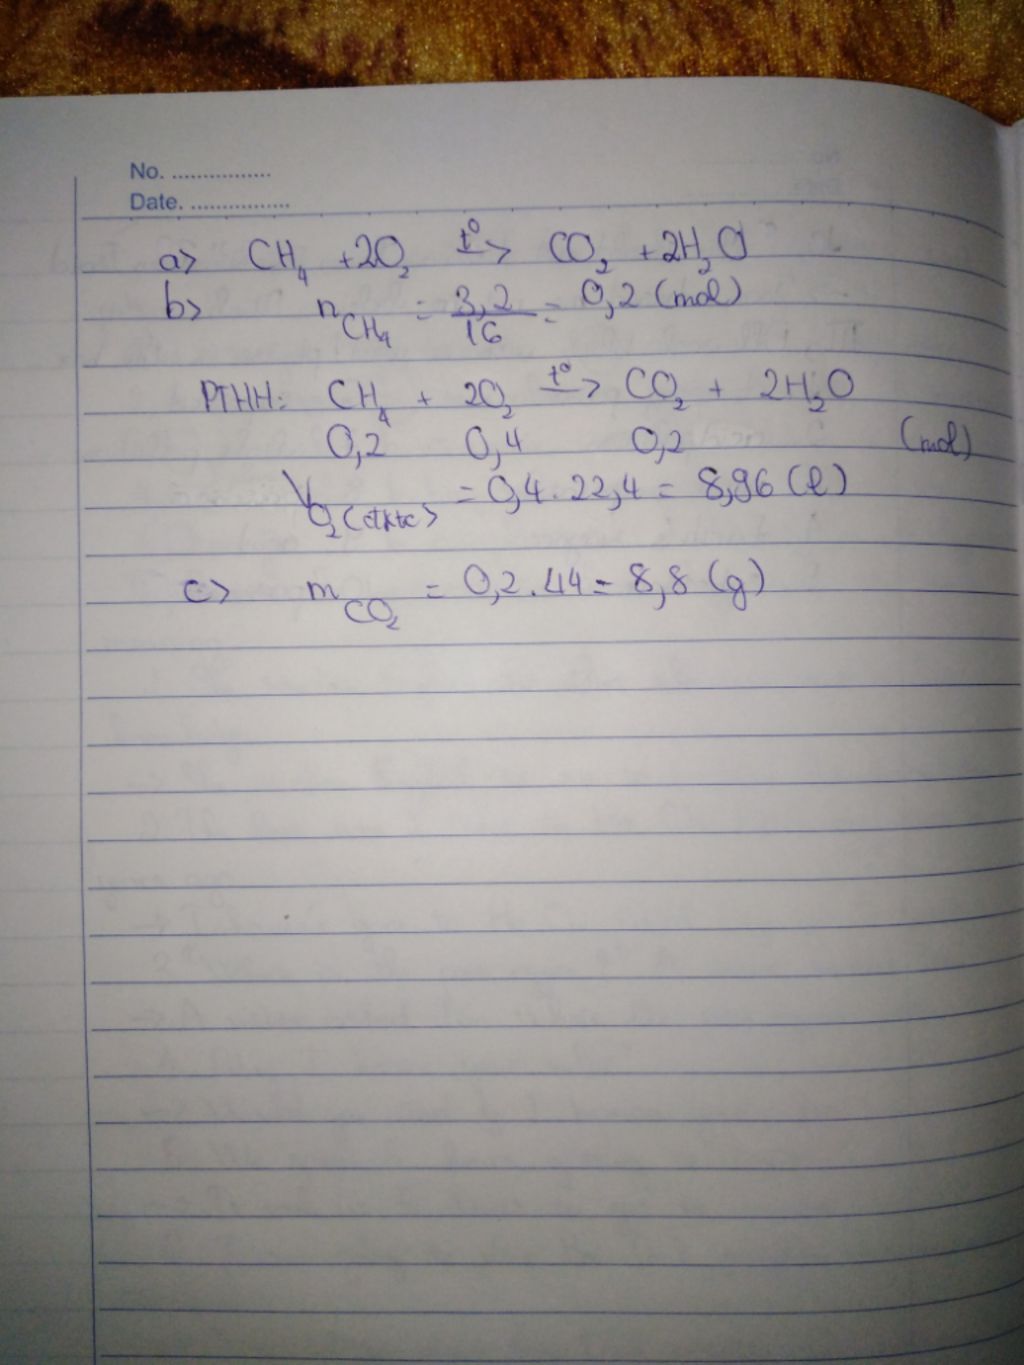 No. ................
Date. ................
a> CH₄ + 2O₂ t⁰-> CO₂ + 2H₂O
b> n CH₄ = 3,2/16 = 0,2 (mol)
PTHH: CH₄ + 2O₂ t⁰-> CO₂ + 2H₂O
0,2 0,4 0,2 (mol)
V O₂(đktc) = 0,4 . 22,4 = 8,96 (l)
c> m CO₂ = 0,2 . 44 = 8,8 (g)